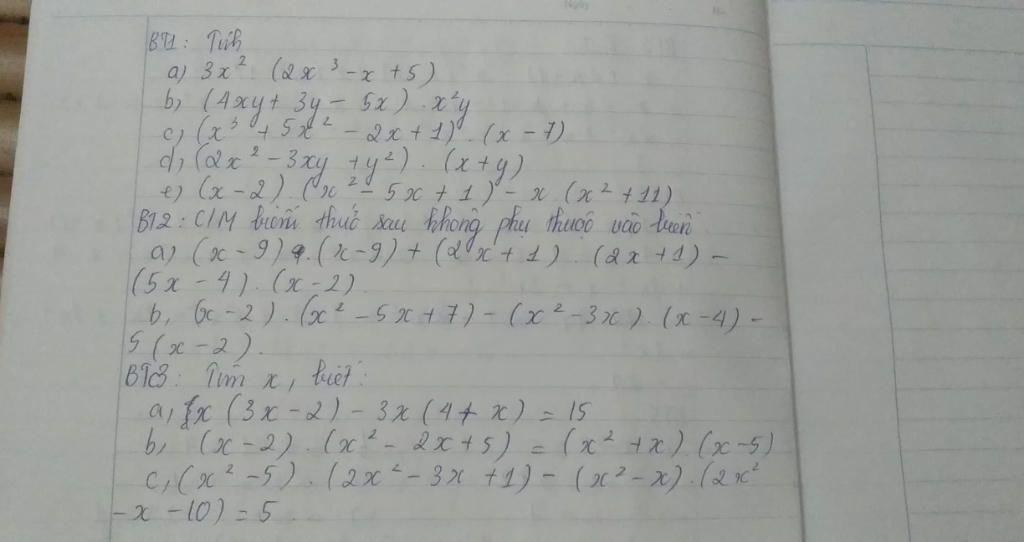 BT1: Tính
a) 3x² (2x³ - x + 5)
b, (4xy + 3y - 5x) . x²y
c, (x³ + 5x² - 2x + 1) . (x - 7)
d, (2x² - 3xy + y²) . (x + y)
e, (x - 2) . (x² - 5x + 1) - x (x² + 11)
BT2: C/M biểu thức sau không phụ thuộc vào biến
a) (x - 9) . (x - 9) + (2x + 1) . (2x + 1) -
(5x - 4) . (x - 2)
b, (x - 2) . (x² - 5x + 7) - (x² - 3x) . (x - 4) -
5 (x - 2).
BT3: Tìm x, biết:
a, x (3x - 2) - 3x (4 + x) = 15
b, (x - 2) . (x² - 2x + 5) = (x² + x) (x - 5)
c, (x² - 5) . (2x² - 3x + 1) - (x² - x) . (2x²
- x - 10) = 5